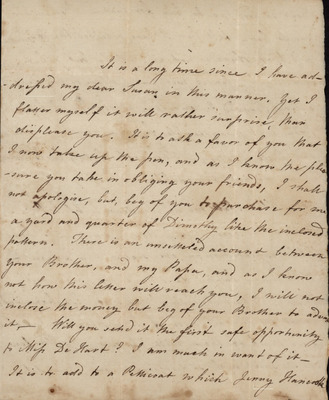 It is a long time since I have ad-
-dressed my dear Susan in this manner. Yet I
flatter myself it will rather surprise, than
displease you. It is to ask a favor of you that
I now take up the pen, and as I know the plea
sure you take in obliging your friends, I shall
not apologise, but, beg of you to purchase for me
a yard and quarter of Dimothy like the inclosed
pattern. There is an unsettled account between
your Brother, and my Papa, and as I know
not how this letter will reach you, I will not
inclose the money but beg of your Brother to advance
it,— Will you send it the first safe opportunity
to Miss De Hart? I am much in want of it—
It is to add to a Petticoat which Jenny Hancock